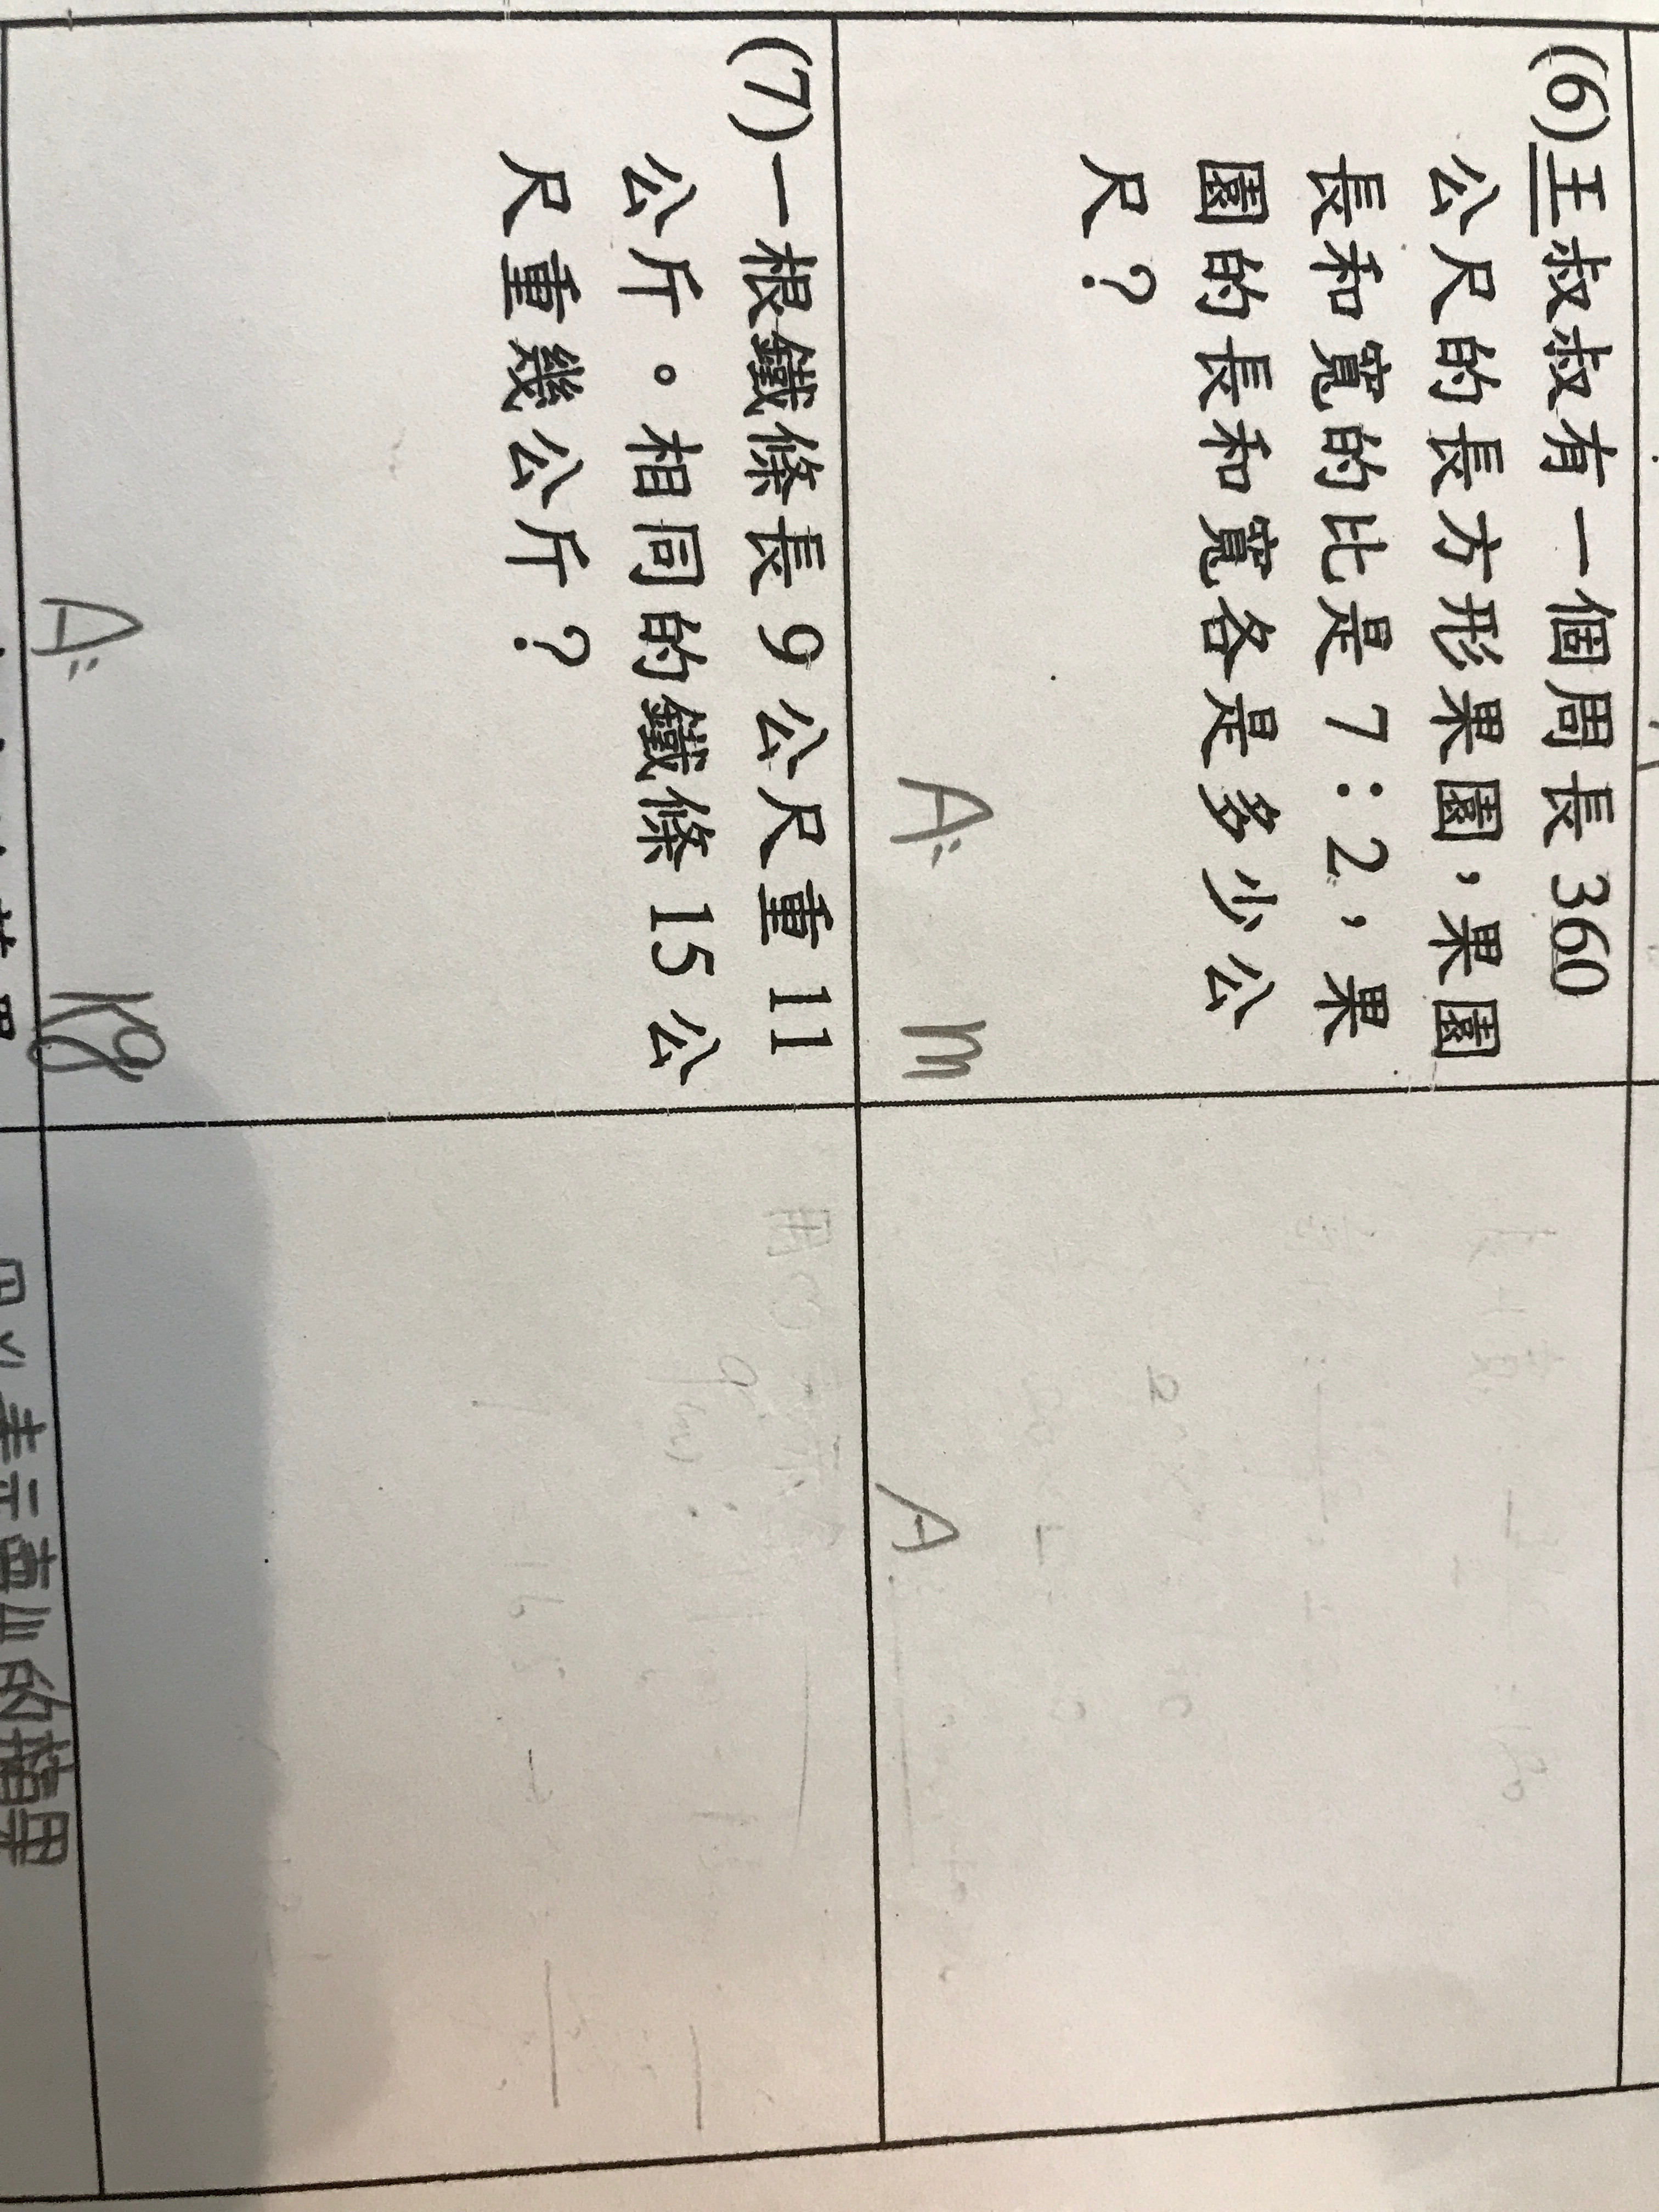 (6)王叔叔有一個周長360
公尺的長方形果園，果園
長和寬的比是7：2，果
園的長和寬各是多少公
尺？
A:
m
A
(7)一根鐵條長9公尺重11
公斤。相同的鐵條15公
尺重幾公斤？
A:
kg